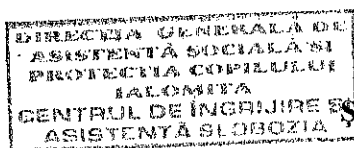 DIRECȚIA GENERALĂ DE
ASISTENȚĂ SOCIALĂ ȘI
PROTECȚIA COPILULUI
IALOMIȚA
CENTRUL DE ÎNGRIJIRE ȘI
ASISTENȚĂ SLOBOZIA